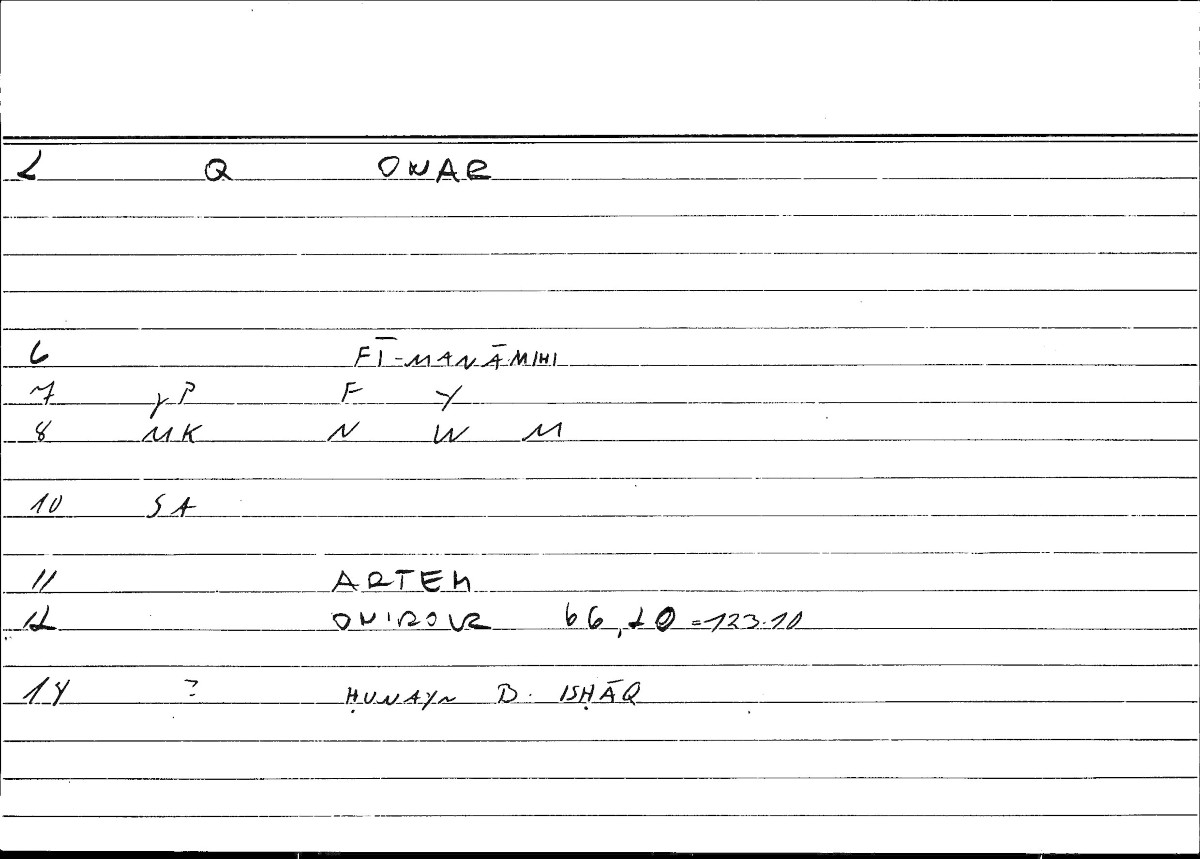 2 Q ONAR
6 FĪ-MANĀMIHI
7 γP F Y
8 MK N W M
10 SA
11 ARTEM
12 ONIROUR 66,20=123.10
14 ? ḤUNAYN B. ISḤĀQ